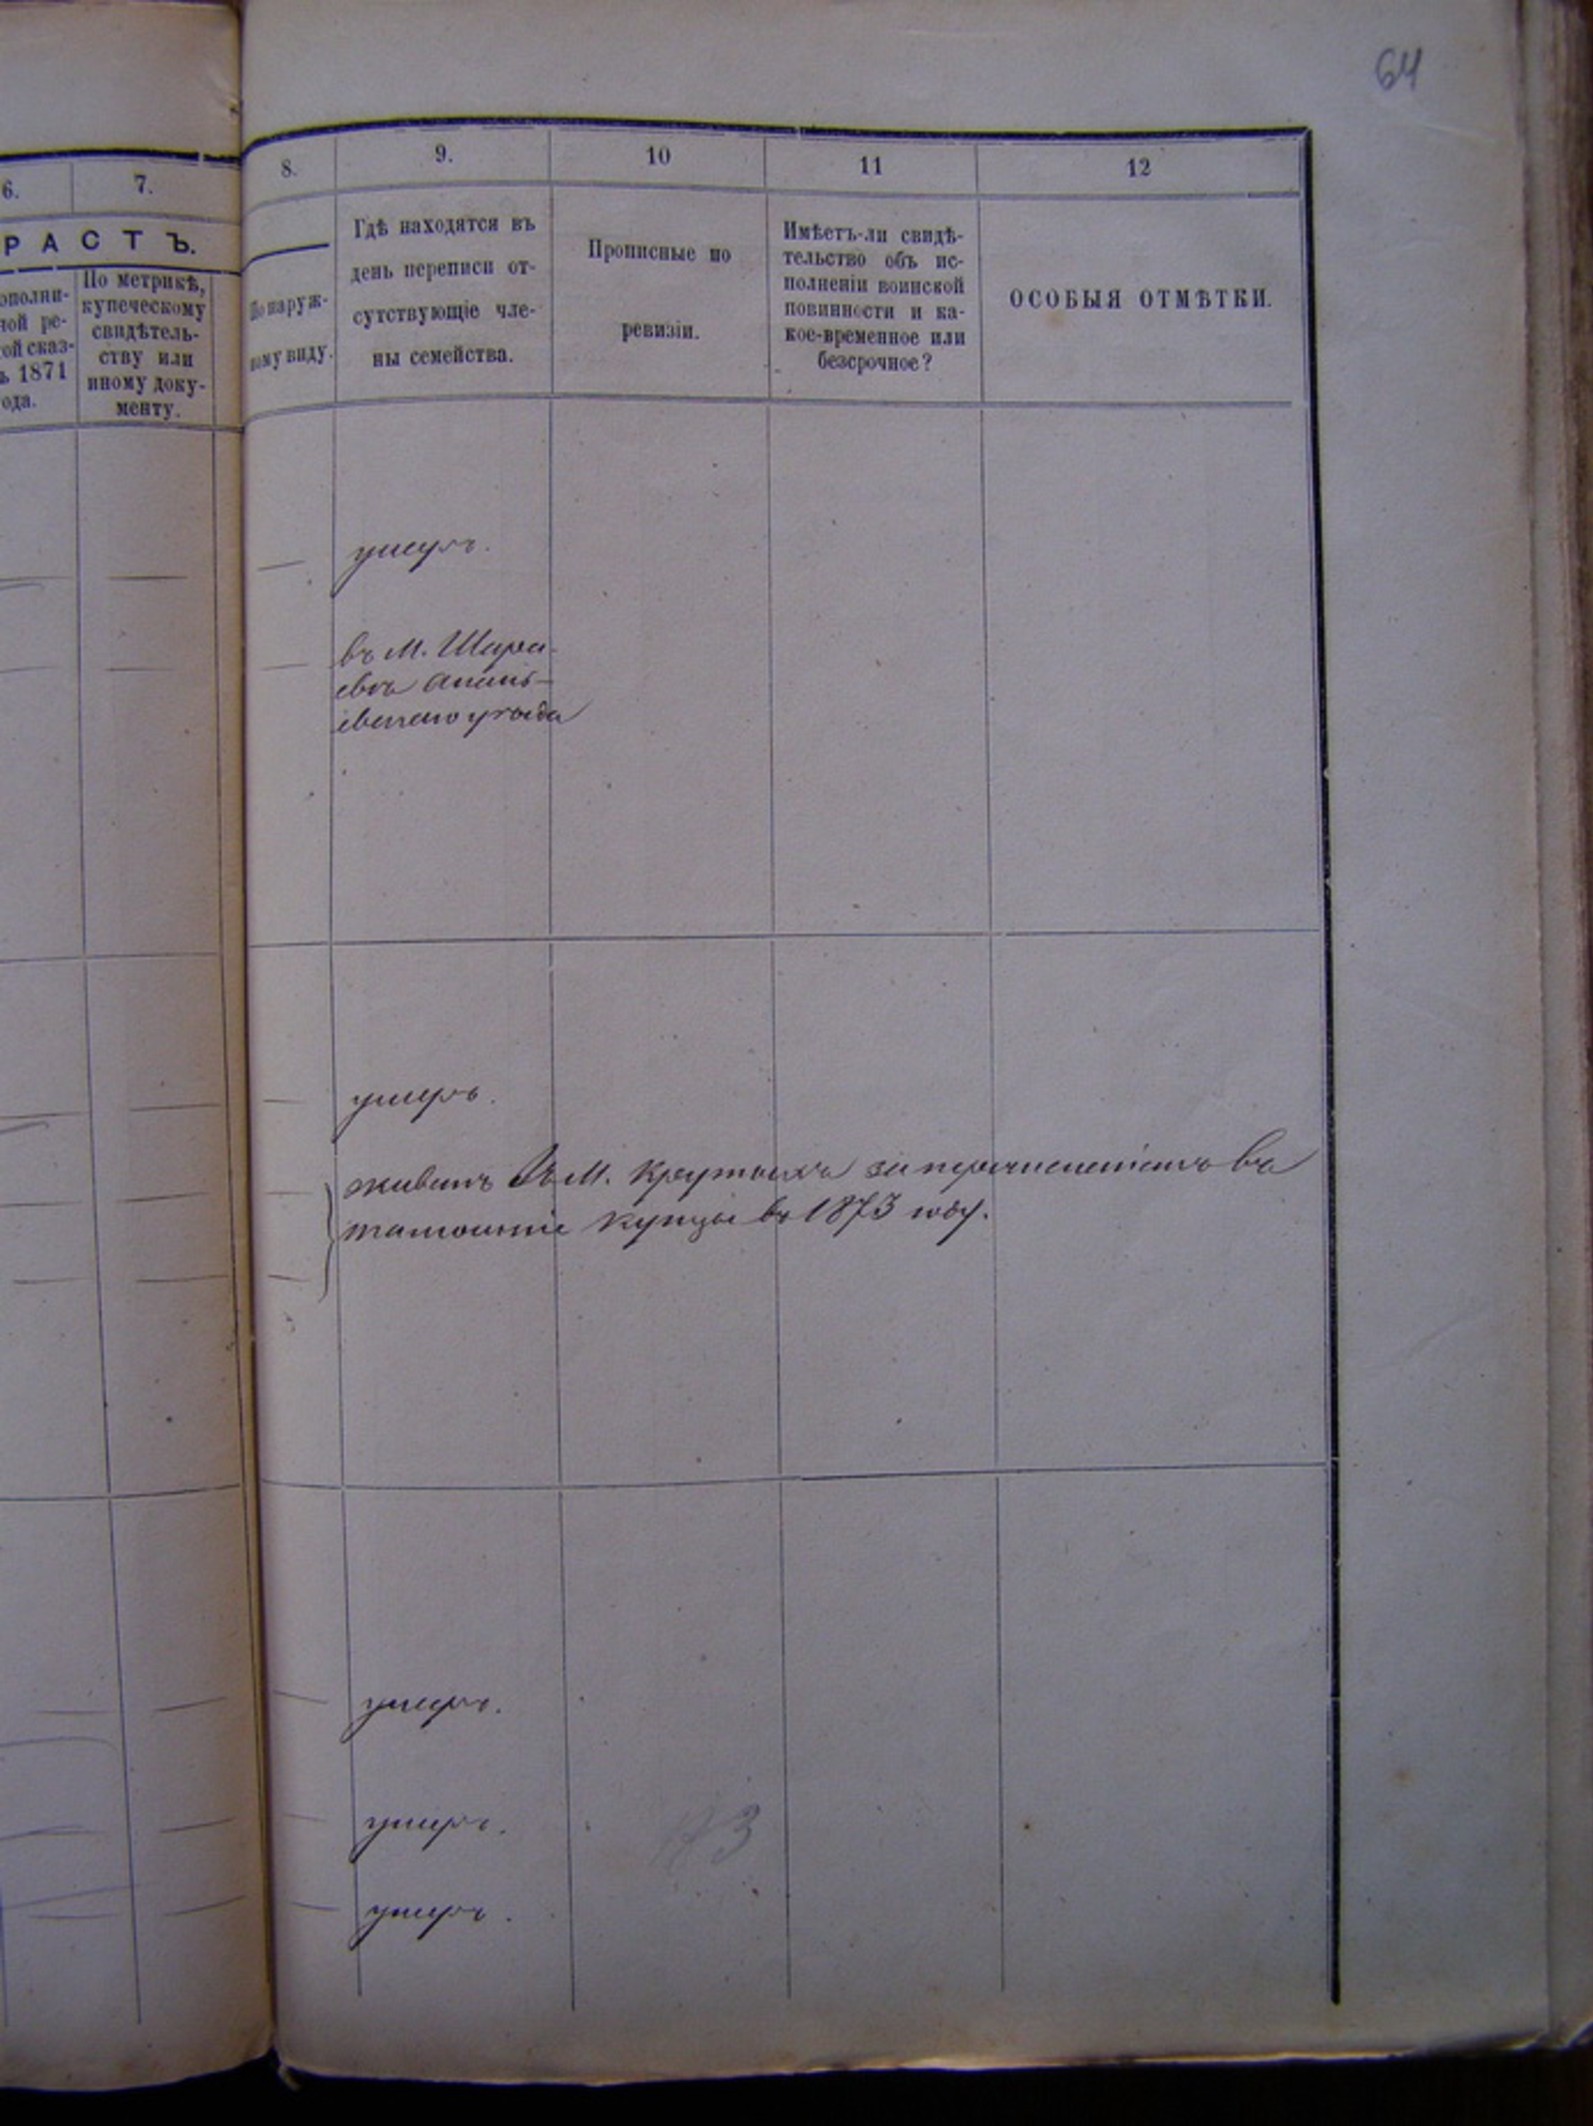 64
6.
7.
8.
9.
10
11
12
РАСТЪ.
ополни-
ной ре-
ой сказ-
ъ 1871
ода.
По метрикѣ,
купеческому
свидѣтель-
ству или
иному доку-
менту.
По наруж-
ному виду.
Гдѣ находятся въ
день переписи от-
сутствующіе чле-
ны семейства.
Прописные по
ревизіи.
Имѣетъ-ли свидѣ-
тельство объ ис-
полненіи воинской
повинности и ка-
кое-временное или
безсрочное?
ОСОБЫЯ ОТМѢТКИ.
умеръ.
въ М. Шира-
евѣ Анань-
евскаго уѣзда
умеръ.
живетъ въ М. Крутыхъ за перечисленіемъ въ
тамошніе купцы въ 1873 году.
умеръ.
умеръ.
умеръ.